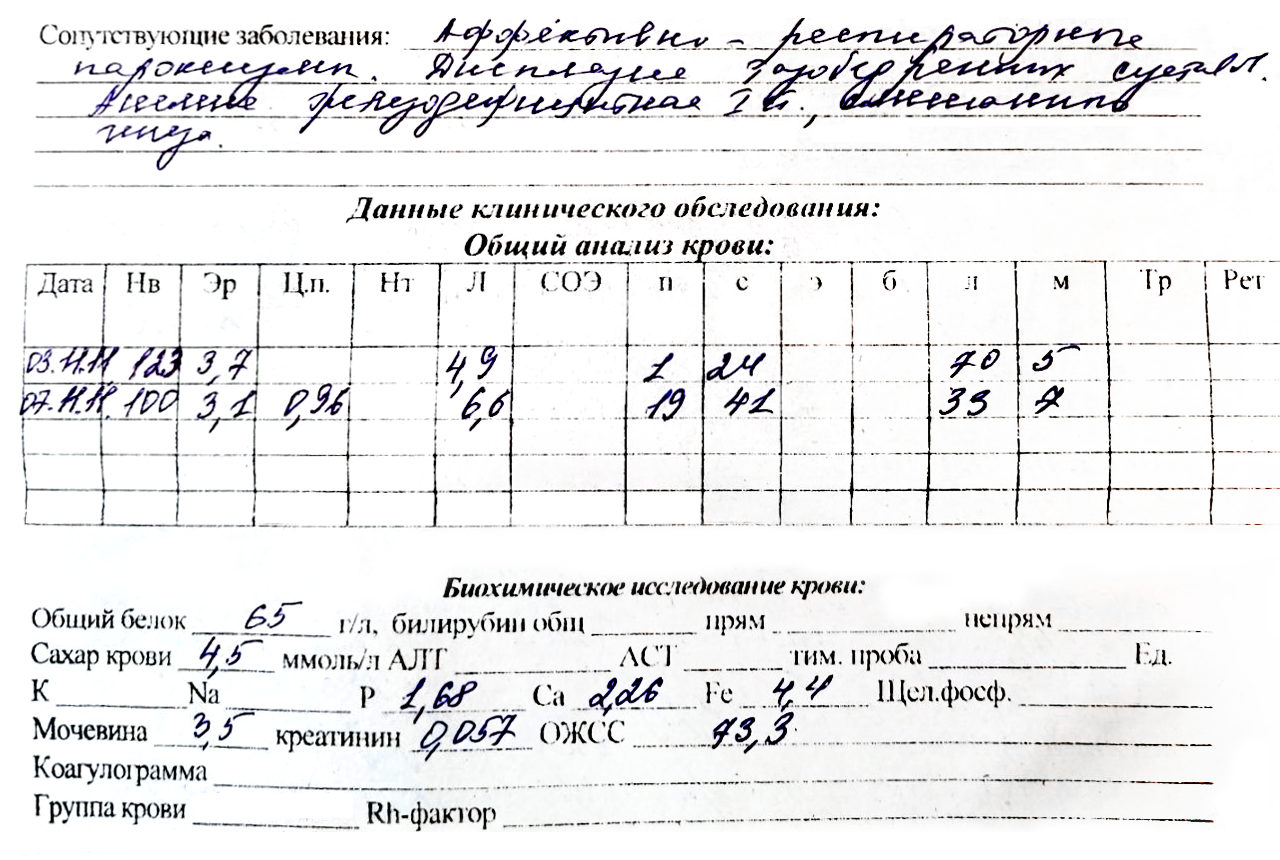 Сопутствующие заболевания: Аффективно - респираторные
пароксизмы. Дисплазия тазобедренных суставов.
Анемия железодефицитная I ст., смешанного
генеза.
Данные клинического обследования:
Общий анализ крови:
Дата Нв Эр Ц.п. Нт Л СОЭ п с э б л м Тр Рет
03.11.11 123 3,7 4,9 1 24 70 5
07.11.11. 100 3,1 0,96 6,6 19 41 33 7
Биохимическое исследование крови:
Общий белок 65 г/л, билирубин общ прям непрям
Сахар крови 4,5 ммоль/л АЛТ АСТ тим. проба Ед.
К Na Р 1,68 Са 2,26 Fe 4,4 Щел.фосф.
Мочевина 3,5 креатинин 0,057 ОЖСС 73,3
Коагулограмма
Группа крови Rh-фактор